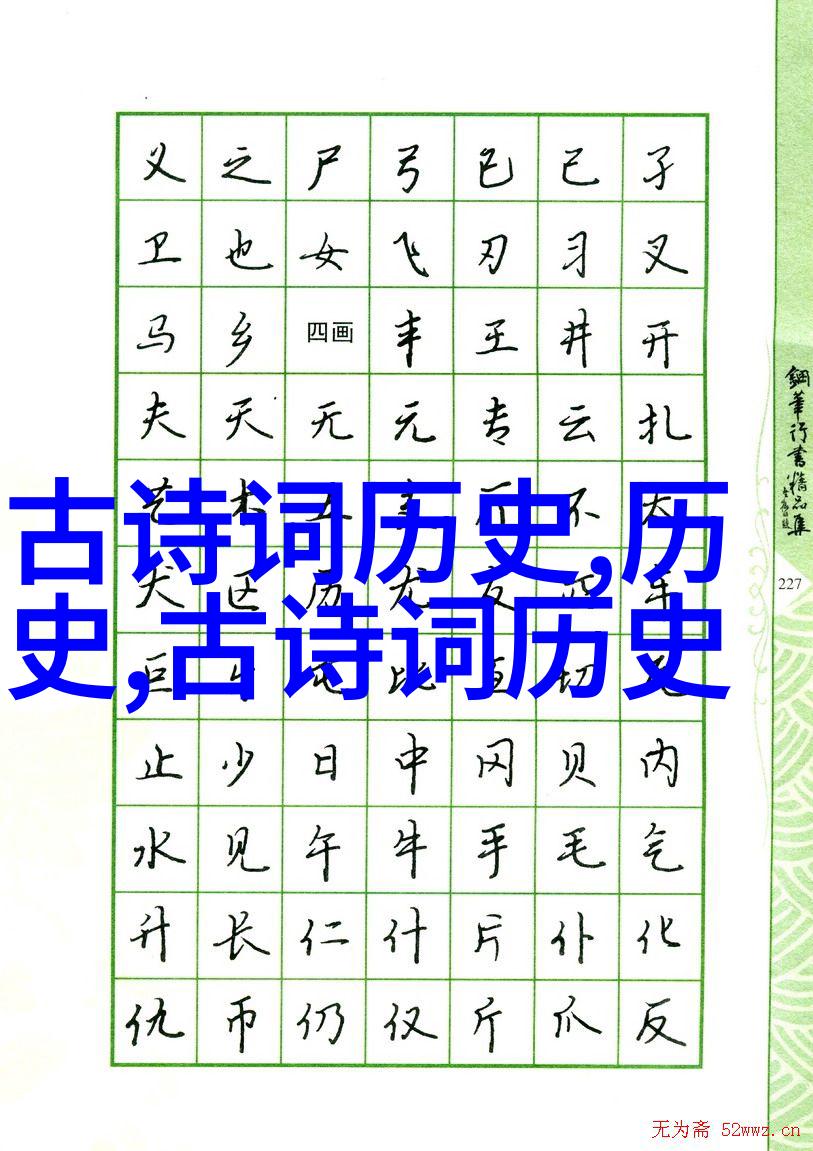 义 之 尸 弓 已 己 子
卫 也 女 飞 刃 习 叉
马 乡 四画 丰 王 井 开
夫 天 无 元 专 云 扎
艺 木 五 支 厅 不 太
犬 区 历 尤 友 匹 车
巨 牙 屯 比 互 切 瓦
止 少 日 中 冈 贝 内
水 见 午 牛 手 毛 气
升 长 仁 什 片 仆 化
仇 币 仍 仅 斤 爪 反
古诗词历史,历
史,古诗词历史
鋼筆行書精品集
227
无为斋 52wwz.cn